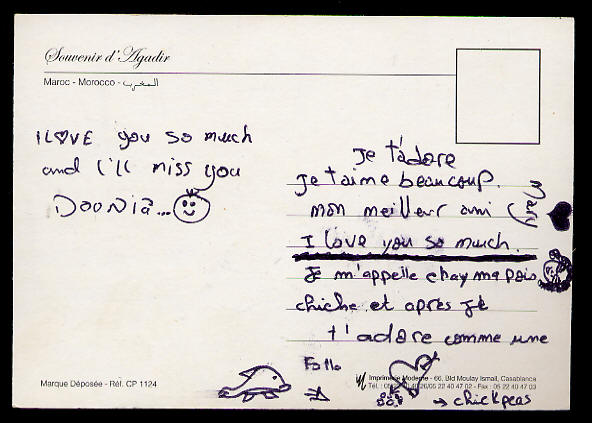 Souvenir d'Agadir
Maroc - Morocco - المغرب
I LOVE you so much
and I'll miss you
DOONiA...
Je t'adore
Je t'aime beaucoup.
mon meilleur ami
Mary
I love you so much.
Je m'appelle chay ma pois
chiche et après je
t'adore comme une
Folle
chickpeas
Marque Déposée - Réf. CP 1124
Imprimerie Moderne - 66, Bld Moulay Ismail, Casablanca
05 22 40 47 02 - Fax : 05 22 40 47 03